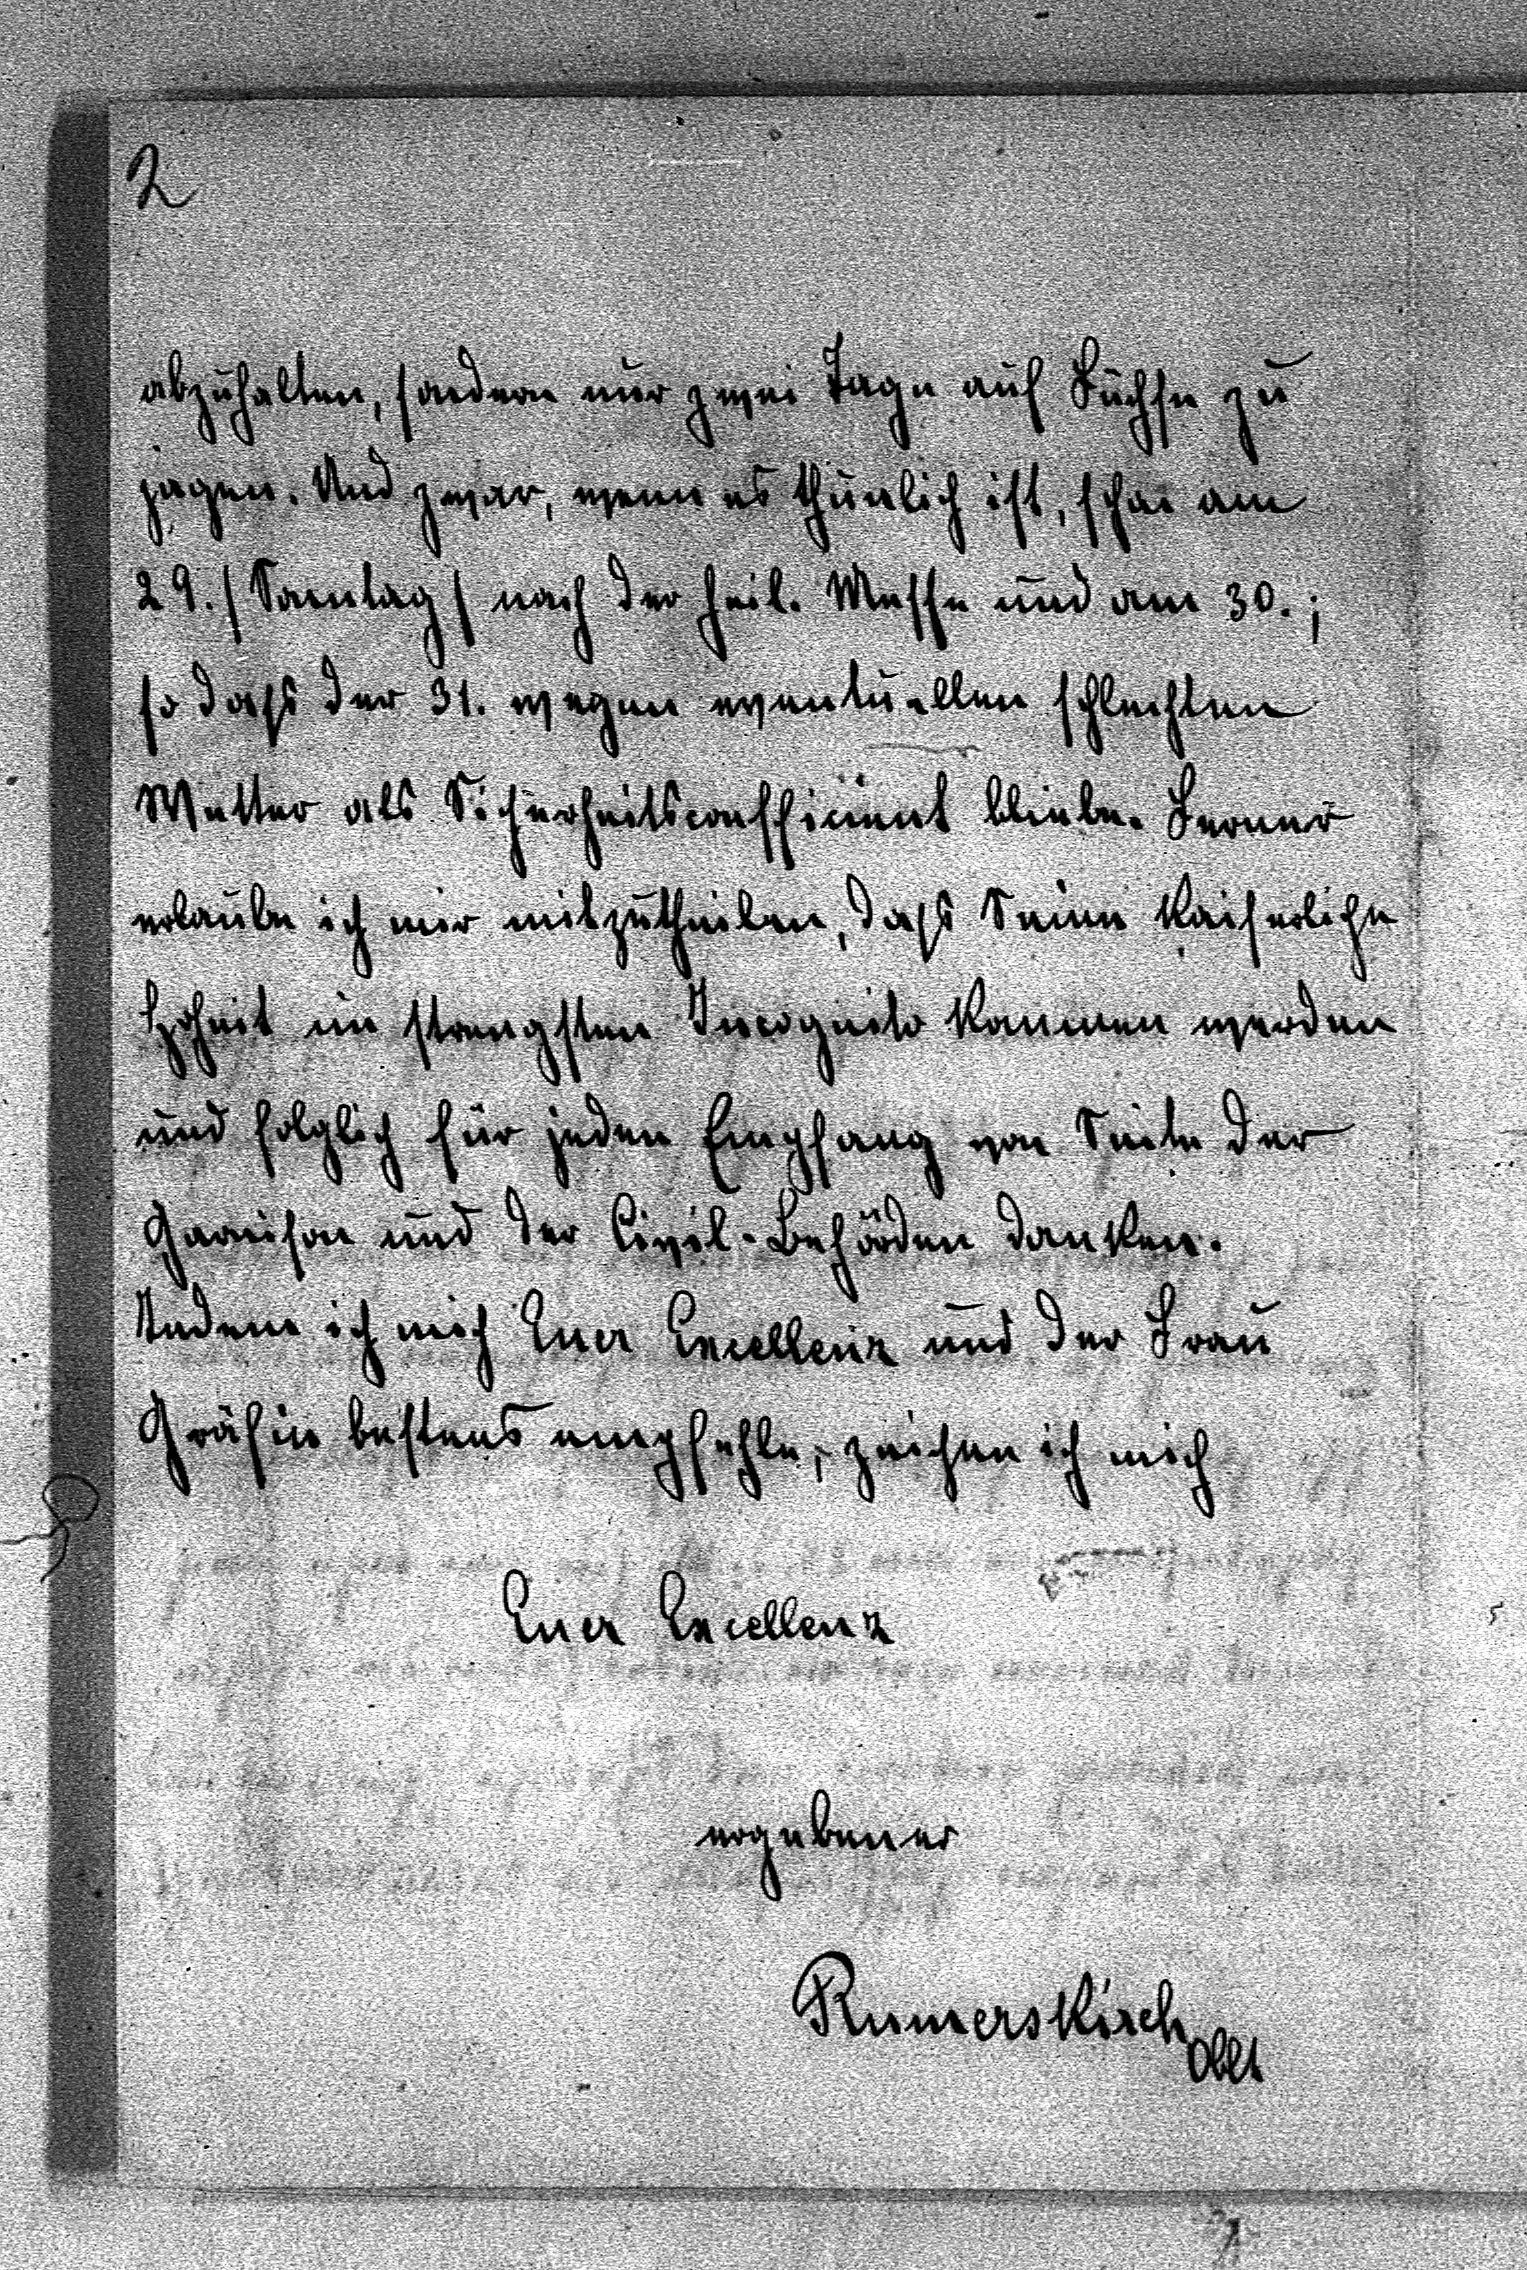 2
abzuhalten, sondern nur zwei Tage auf Füchse zu
jagen. Und zwar, wenn es thunlich ist, schon am
29. /Sonntag/ nach der heil. Messe und am 30.;
so dass der 31. wegen eventuellen schlechten
Wetter als Sicherheitscoefficient bliebe. Ferner
erlaube ich mir mitzutheilen, dass Seine Kaiserliche
Hoheit im strengsten Incognito kommen werden
und folglich für jeden Empfang von Seite der
Garnison und der Civil-Behörden danken.
Indem ich mich Euer Excellenz und der Frau
Gräfin bestens empfehle, zeichne ich mich
Euer Excellenz
ergebener
Rumerskirch
Oblt